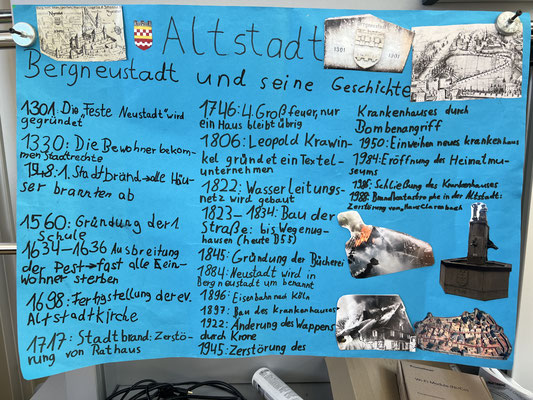 Altstadt
Bergneustadt und seine Geschichte
1301 1301
1301: Die "Feste Neustadt" wird
gegründet
1330: Die Bewohner bekom-
men Stadtrechte
1. Stadtbrand → alle Häu-
ser brannten ab
1560: Gründung der 1.
Schule
1634-1636 Ausbreitung
der Pest → fast alle Ein-
wohner sterben
1698: Fertigstellung der ev.
Altstadtkirche
1717: Stadtbrand: Zerstö-
rung von Rathaus
1746: 4. Großfeuer, nur
ein Haus bleibt übrig
1806: Leopold Krawin-
kel gründet ein Textel-
unternehmen
1822: Wasserleitungs-
netz wird gebaut
1823-1834: Bau der
Straße: bis Wegenug-
hausen (heute B55)
1845: Gründung der Bücherei
1884: Neustadt wird in
Bergneustadt um benannt
1896: Eisenbahn nach Köln
1897: Bau des Krankenhauses
1922: Änderung des Wappens
durch Krone
1945: Zerstörung des
Krankenhauses durch
Bombenangriff
1950: Einweihen neues Krankenhaus
1984: Eröffnung des Heimatmu-
seums
1986: Schließung des Krankenhauses
1988: Brandkatastrophe in der Altstadt:
Zerstörung von Haus Clarenbach